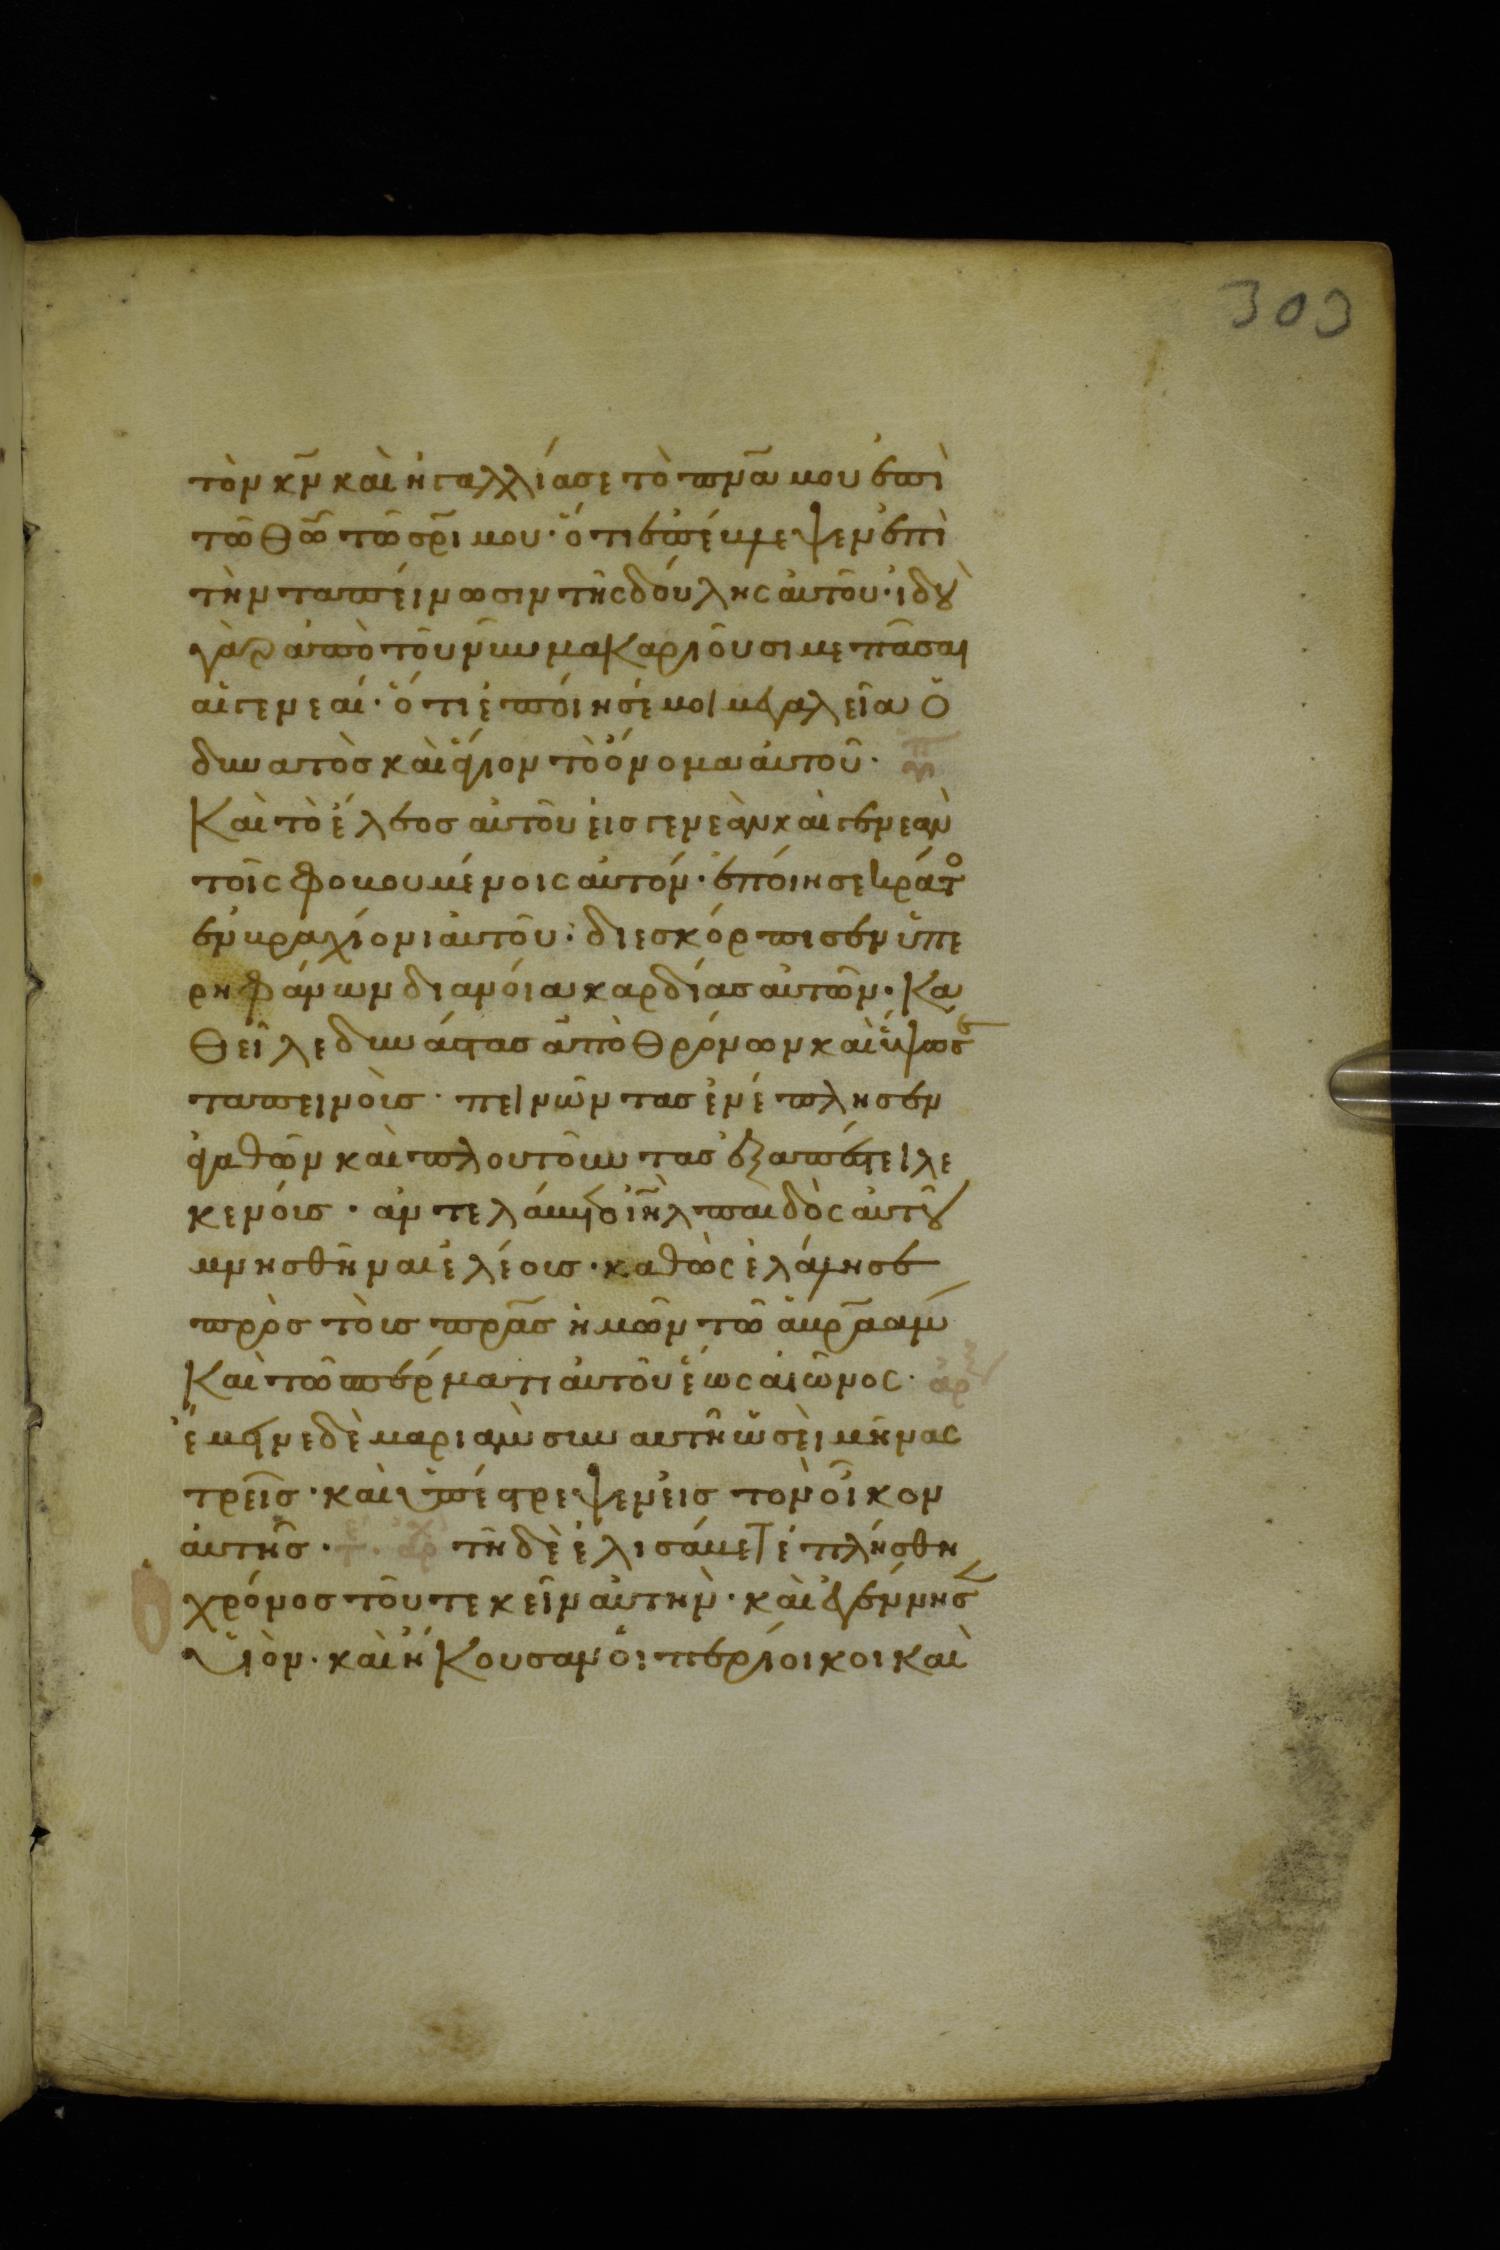 303
τὸν κ̅ν καὶ ἠγαλλίασε τὸ πν̅α μου ἐπὶ
τῶ θ̅ω τῶ σρ̅ι μου· ὅτι ἐπέβλεψεν ἐπὶ
τὴν ταπείνωσιν τῆς δούλης αὐτοῦ· ἰδοὺ
γὰρ ἀπὸ τοῦ νῦν μακαριοῦσι με πᾶσαι
αἱ γενεαί· ὅτι ἐποίησέ μοι μεγαλεῖα ὁ
δυνατὸσ καὶ ἅγιον τὸ ὄνομα αὐτοῦ·
Καὶ τὸ ἔλεοσ αὐτοῦ εἰσ γενεὰν καὶ γενεὰν
τοῖς φοβουμένοις αὐτόν· ἐποίησε κράτο
ἐν βραχίονι αὐτοῦ· διεσκόρπισεν ὑπε
ρηφάνων διανόια καρδίασ αὐτῶν· Κα
θεῖλε δυνάστασ ἀπὸ θρόνων καὶ ὕψωσε
ταπεινοὺσ· πεινῶντασ ἐνέπλησεν
ἀγαθῶν καὶ πλουτοῦντασ ἐξαπέστειλε
κενούσ· ἀντελάβετο ἰη̅λ παιδὸς αὐτοῦ
μνησθῆναι ἐλέουσ· καθὼς ἐλάλησε
πρὸσ τοὺσ πρ̅ασ ἡμῶν τῶ ἀβρ̅αὰμ
Καὶ τῶ σπέρματι αὐτοῦ ἕως αἰῶνος·
ἔμεινε δὲ μαριὰμ σὺν αυτῆ ὡσεὶ μῆνας
τρεῖσ· καὶ ὑπέστρεψεν εἰσ τον οἶκον
ἁυτῆσ· τῆ δὲ ἐλισάβετ ἐπλήσθη
χρόνοσ τοῦ τεκεῖν αὐτήν· καὶ ἐγέννησε
Υἱὸν· καὶ ἤκουσαν ὁι περίοικοι καὶ